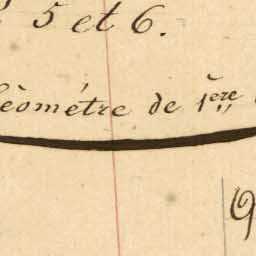 5 et 6.
Géométre de 1ère